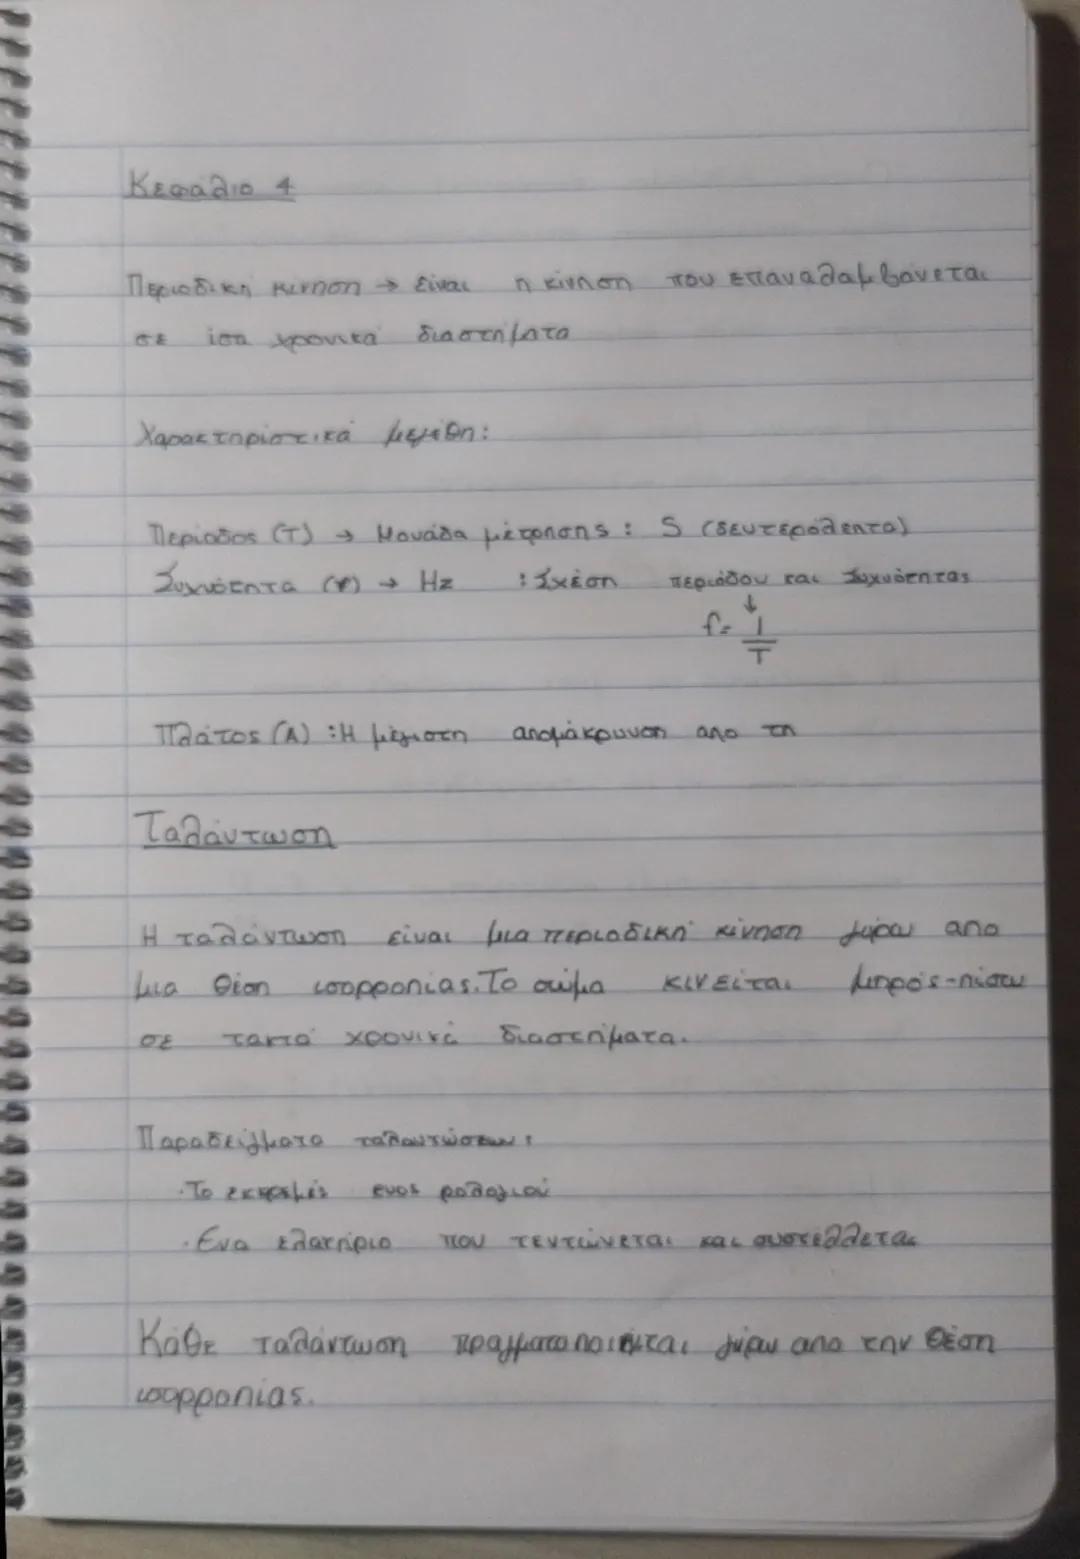 Κεφάλιο 4
Περιοδική κίνηση → Είναι η κίνηση που επαναλαμβάνεται
σε ίσα χρονικά διαστήματα
Χαρακτηριστικά μεγέθη:
Περίοδος (T) → Μονάδα μέτρησης : S (δευτερόλεπτα)
Συχνότητα (f) → Hz : Σχέση περιόδου και συχνότητας
↓
f = 1/T
Πλάτος (A) : Η μέγιστη απομάκρυνση απο τη
Ταλάντωση
Η ταλάντωση είναι μια περιοδική κίνηση γύρω απο
μια θέση ισορροπίας. Το σώμα κινείται μπρός-πίσω
σε τακτά χρονικά διαστήματα.
Παραδείγματα ταλαντώσεων :
· Το εκκρεμές ενος ρολογιού
· Ένα ελατήριο που τεντώνεται και συστέλλεται
Κάθε ταλάντωση πραγματοποιείται γύρω απο την θέση
ισορροπίας.